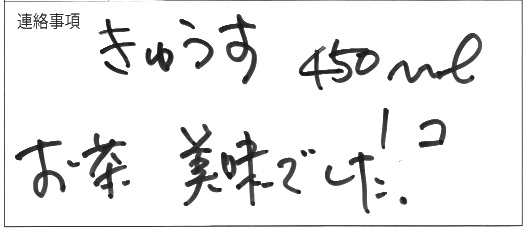 連絡事項
きゅうす 450ml
1コ
お茶 美味でした.